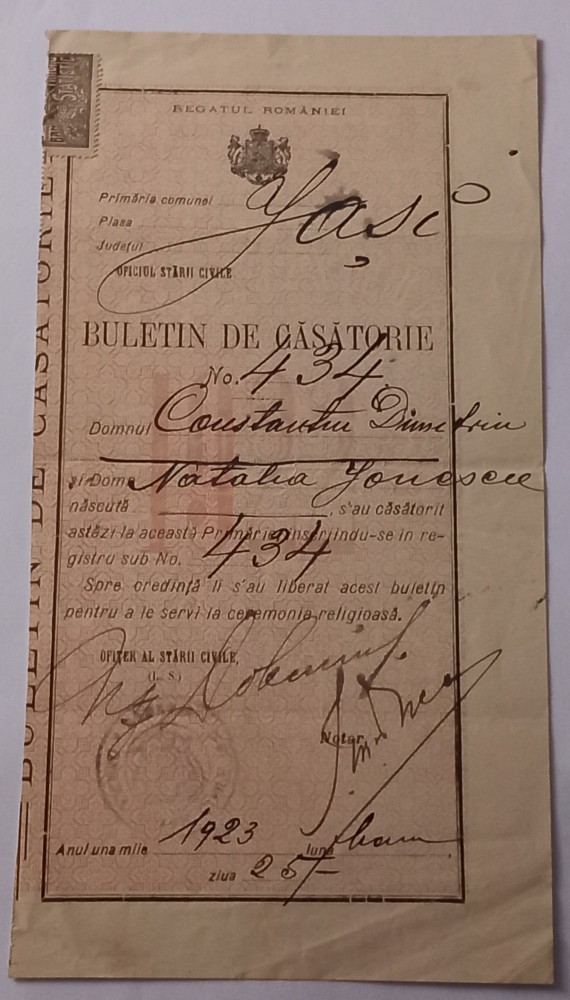 REGATUL ROMÂNIEI
Primăria comunei Iași
Plasa
Județul
OFICIUL STĂRII CIVILE
BULETIN DE CĂSĂTORIE
No. 434
Domnul Constantin Dimitriu
și Dom Natalia Ionescu
născută , s'au căsătorit
astăzi la această Primărie inserindu-se în re-
gistru sub No. 434
Spre credință li s'au liberat acest buletin
pentru a le servi la ceremonia religioasă.
OFIȚER AL STĂRII CIVILE,
(L. S.)
Notar,
Anul una mile 1923 luna
ziua 25
BULETIN DE CĂSĂTORIE